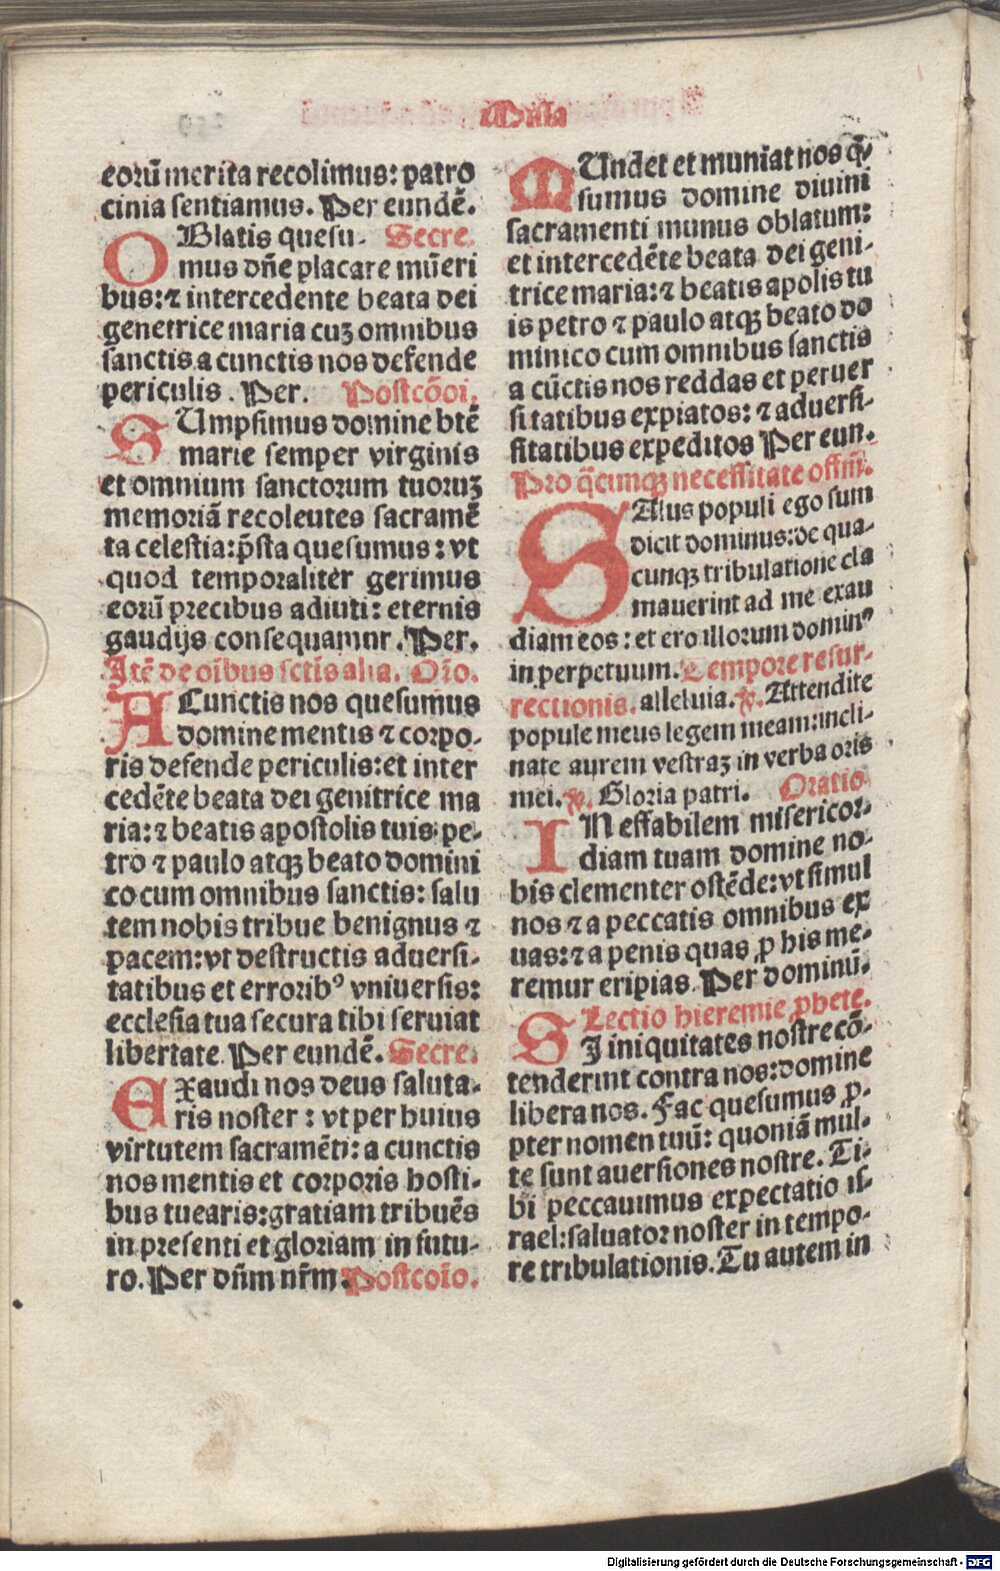 Missa
eorū merita recolimus: patro
cinia sentiamus. Per eundē.
OBlatis quesu- Secre.
mus dn̄e placare mūeri
bus: ⁊ intercedente beata dei
genetrice maria cuȝ omnibus
sanctis a cunctis nos defende
periculis. Per. Postcōoi.
SUmpsimus domine btē
marie semper virginis
et omnium sanctorum tuoruȝ
memoriā recoleutes sacramē
ta celestia: p̄sta quesumus: vt
quod temporaliter gerimus
eorū precibus adiuti: eternis
gaudijs consequamur. Per.
Itē de oībus sctīs alia. Orō.
ACunctis nos quesumus
domine mentis ⁊ corpo-
ris defende periculis: et inter
cedēte beata dei genitrice ma
ria: ⁊ beatis apostolis tuis pe-
tro ⁊ paulo atqȝ beato domini
co cum omnibus sanctis: salu
tem nobis tribue benignus ⁊
pacem: vt destructis aduersi-
tatibus et erroribꝰ vniuersis:
ecclesia tua secura tibi seruiat
libertate. Per eundē. Secre.
Exaudi nos deus saluta-
ris noster: vt per huius
virtutem sacramēti: a cunctis
nos mentis et corporis hosti-
bus tuearis: gratiam tribuēs
in presenti et gloriam in futu-
ro. Per dn̄m nr̄m. Postcoīo.
MUndet et muniat nos q̄-
sumus domine diuini
sacramenti munus oblatum:
et intercedēte beata dei geni-
trice maria: ⁊ beatis apolis tu
is petro ⁊ paulo atqȝ beato do
minico cum omnibus sanctis
a cūctis nos reddas et peruer
sitatibus expiatos: ⁊ aduersi-
sitatibus expeditos Per eun.
Pro q̄cunqȝ necessitate offm̄.
SAlus populi ego sum
dicit dominus: de qua-
cunqȝ tribulatione cla
mauerint ad me exau
diam eos: et ero illorum dominꝰ
in perpetuum. Tempore resur-
rectionis. alleluia. ℣. Attendite
popule meus legem meam: incli-
nate aurem vestraȝ in verba oris
mei. ℣. Gloria patri. Oratio
INeffabilem misericor-
diam tuam domine no-
bis clementer ostēde: vt simul
nos ⁊ a peccatis omnibus ex
uas: ⁊ a penis quas ꝓ his me-
remur eripias. Per dominū.
Lectio hieremie ꝓhete.
SI iniquitates nostre cō-
tenderint contra nos: domine
libera nos. Fac quesumus ꝓ-
pter nomen tuū: quoniā mul-
te sunt auersiones nostre. Ti-
bi peccauimus expectatio is-
rael: saluator noster in tempo-
re tribulationis. Tu autem in
Digitalisierung gefördert durch die Deutsche Forschungsgemeinschaft - DFG